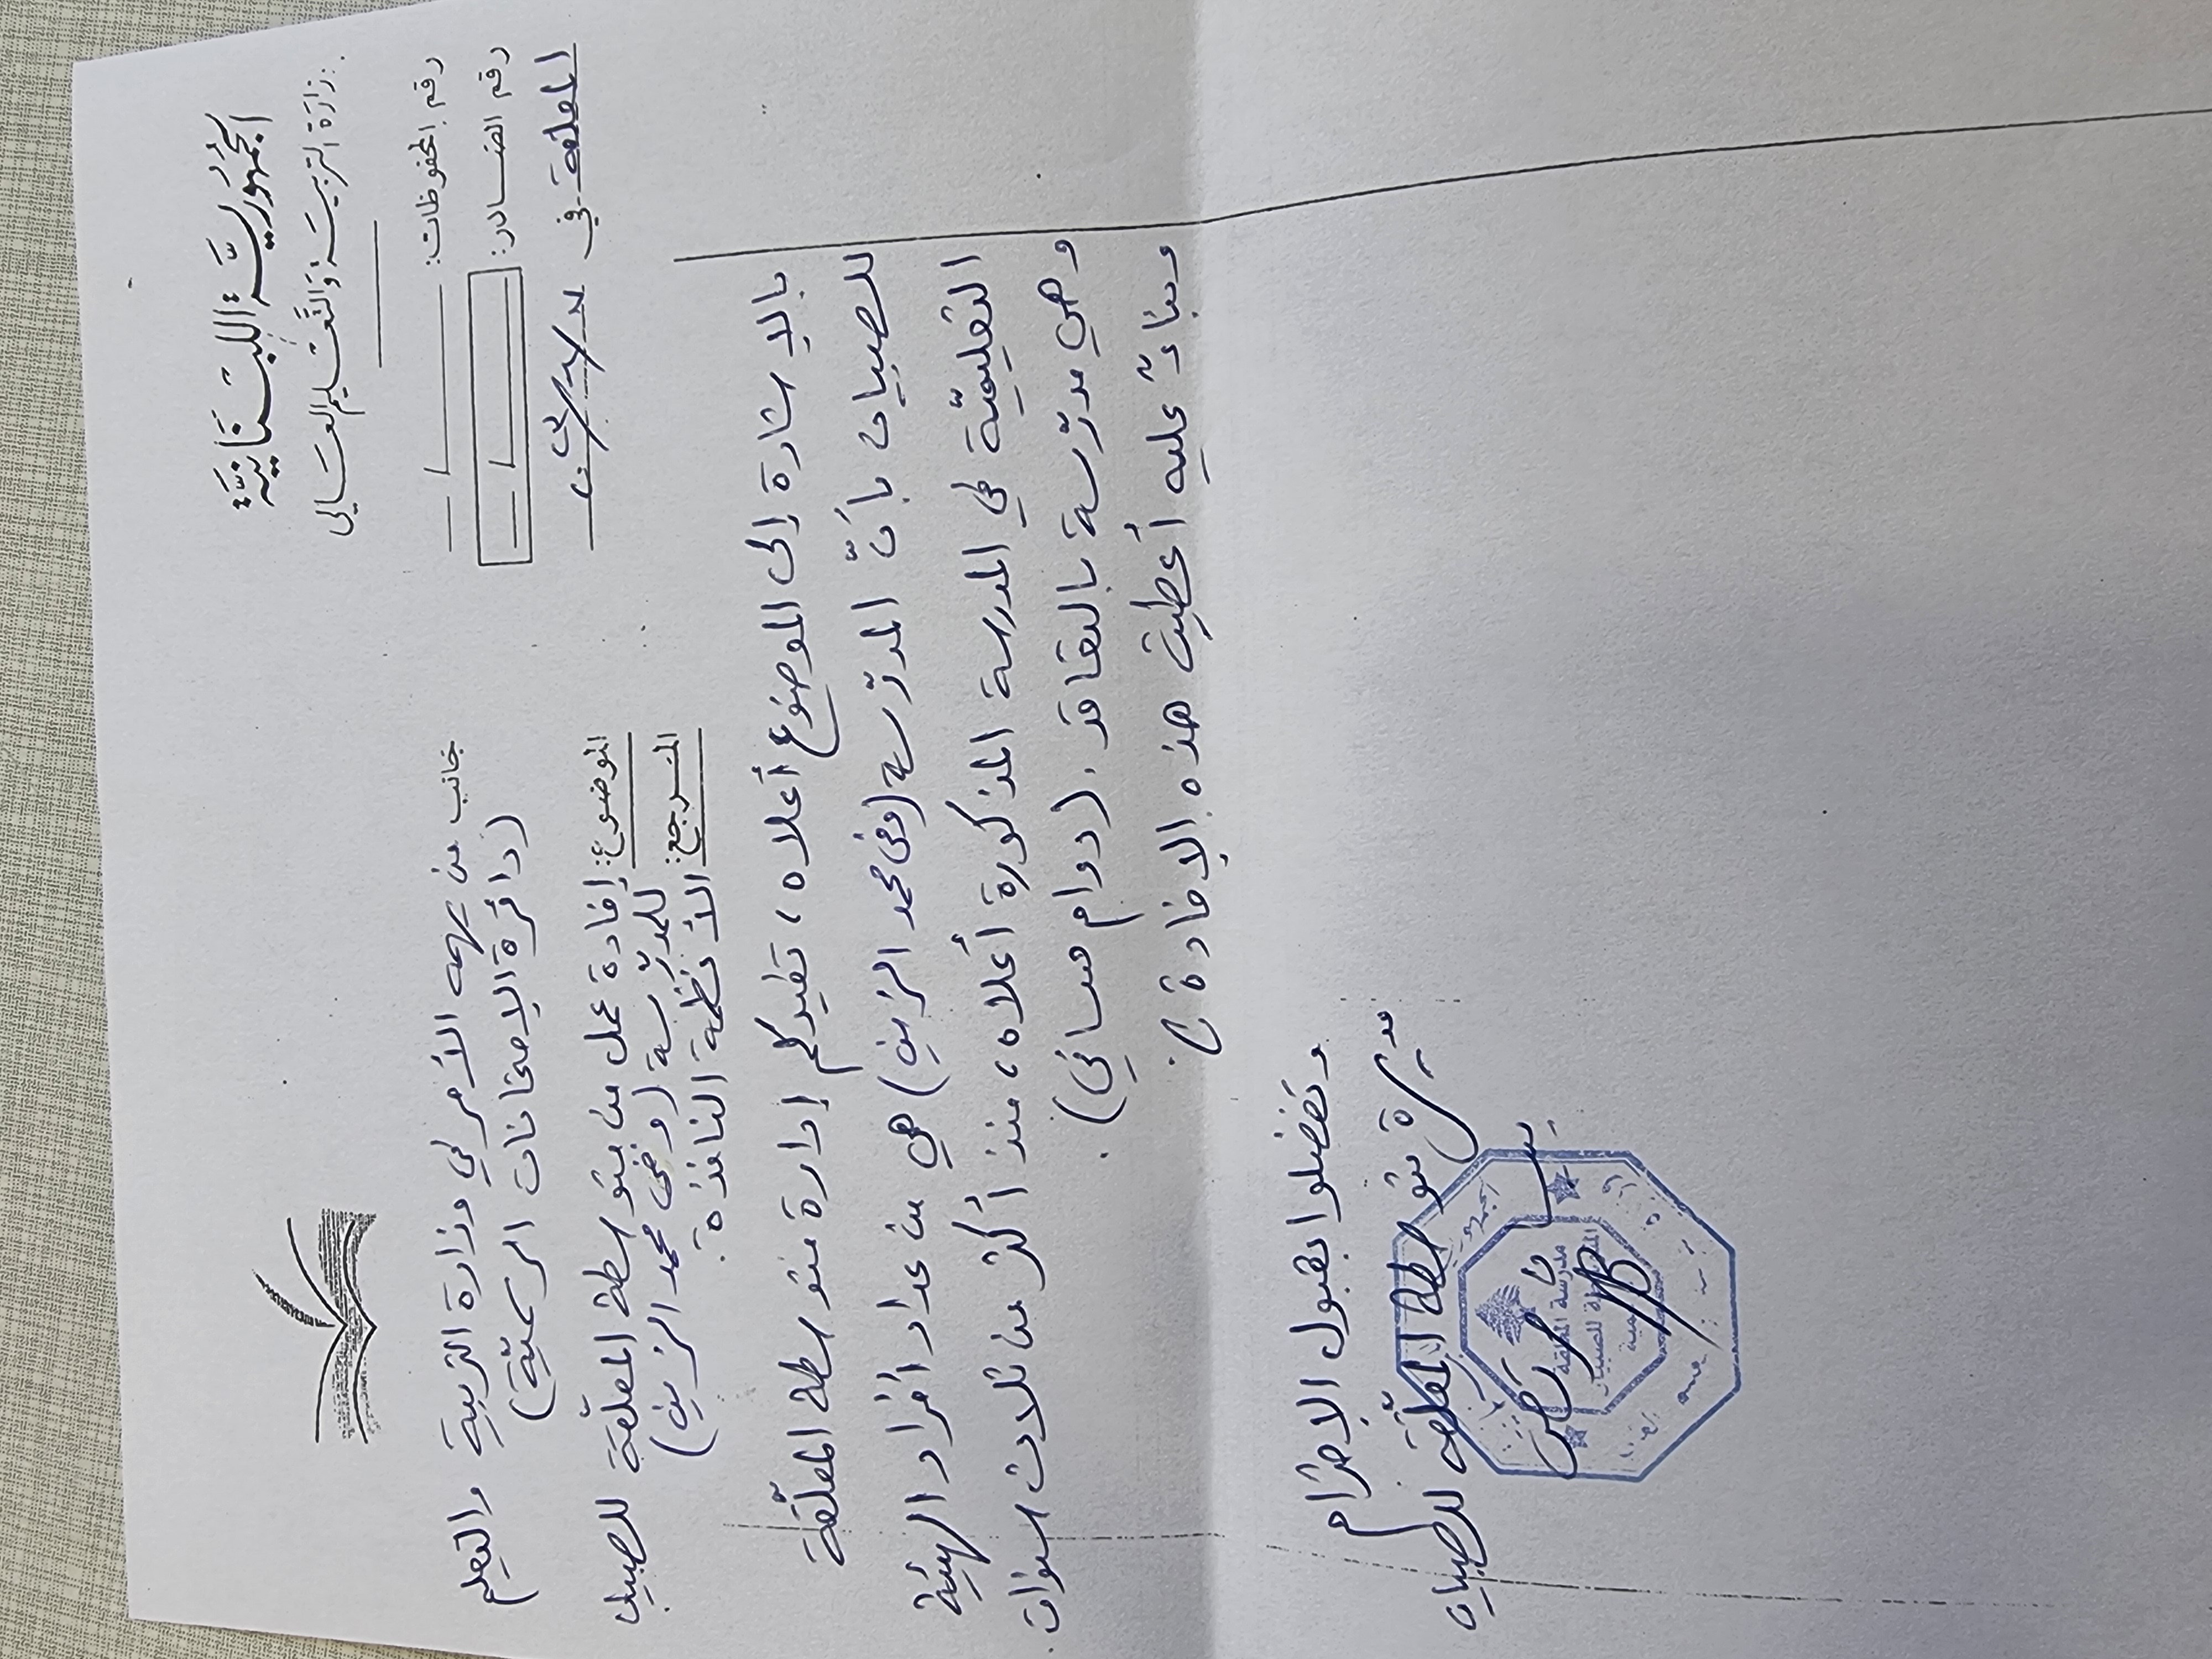 الجمهورية اللبنانية
وزارة التربية والتعليم العالي
رقم المحفوظات:
رقم الصادر:
المعلقة في
جانب من يهمه الأمر في وزارة التربية والتعليم
(دائرة الامتحانات الرسميّة)
الموضوع: إفادة عمل من متوسطة المعلّقة للصبيان
للمدرّسة (وفى محمد الزين)
المرجع: الأنظمة النافذة.
بالإشارة إلى الموضوع أعلاه، تفيدكم إدارة متوسطة المعلّقة
للصبيان بأنّ المدرّسة (وفى محمد الزين) هي من عداد افراد الهيئة
التعليميّة في المدرسة المذكورة أعلاه، منذ أكثر من ثلاث سنوات.
وهي مدرّسة بالتعاقد. (دوام مسائي).
وبناءً عليه أعطيت هذه الإفادة.
وتفضلوا بقبول الإحترام
مديرة متوسطة المعلّقة للصبيان
مدرسة المعلقة